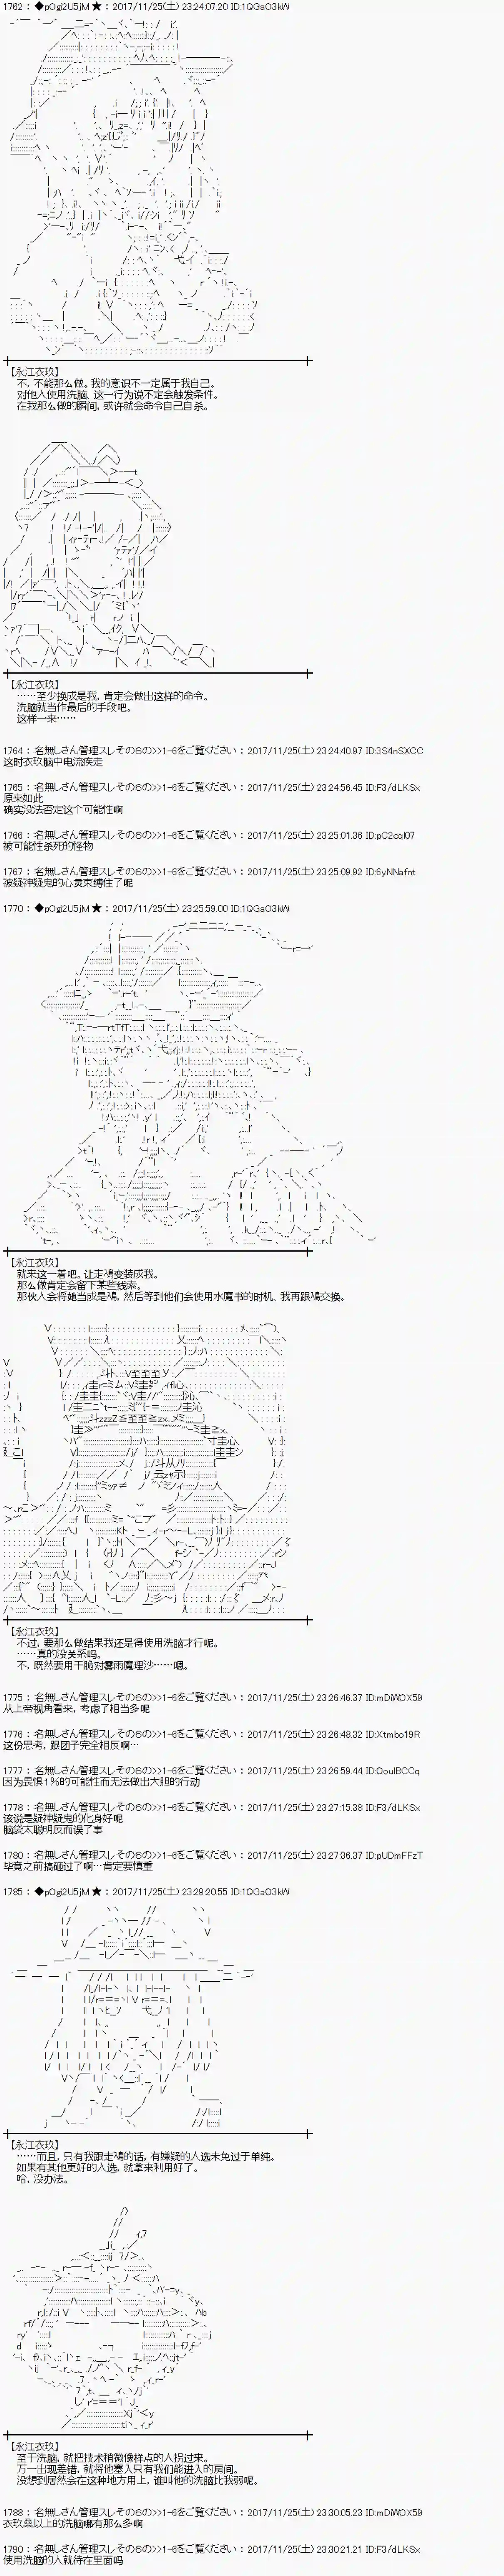 1762 : ◆pOgi2U5jM ★ : 2017/11/25(土) 23:24:07.20 ID:1QGaO3kW
【永江衣玖】
不，不能那么做。我的意识不一定属于我自己。
对他人使用洗脑，这一行为说不定会触发条件。
在我那么做的瞬间，或许就会命令自己自杀。
【永江衣玖】
……至少换成是我，肯定会做出这样的命令。
洗脑就当作最后的手段吧。
这样一来……
1764 : 名無しさん管理スレその6の>>1-6をご覧ください : 2017/11/25(土) 23:24:40.97 ID:3S4nSXCC
这时衣玖脑中电流疾走
1765 : 名無しさん管理スレその6の>>1-6をご覧ください : 2017/11/25(土) 23:24:56.45 ID:F3/dLKSx
原来如此
确实没法否定这个可能性啊
1766 : 名無しさん管理スレその6の>>1-6をご覧ください : 2017/11/25(土) 23:25:01.36 ID:pC2cql07
被可能性杀死的怪物
1767 : 名無しさん管理スレその6の>>1-6をご覧ください : 2017/11/25(土) 23:25:09.92 ID:6yNNafnt
被疑神疑鬼的心灵束缚住了呢
1770 : ◆pOgi2U5jM ★ : 2017/11/25(土) 23:25:59.00 ID:1QGaO3kW
【永江衣玖】
就来这一着吧。让走鳰变装成我。
那么做肯定会留下某些线索。
那伙人会将她当成是鳰，然后等到他们会使用水魔书的时机、我再跟鳰交换。
【永江衣玖】
不过，要那么做结果我还是得使用洗脑才行呢。
……真的没关系吗。
不，既然要用干脆对雾雨魔理沙……嗯。
1775 : 名無しさん管理スレその6の>>1-6をご覧ください : 2017/11/25(土) 23:26:46.37 ID:mDiWOX59
从上帝视角看来，考虑了相当多呢
1776 : 名無しさん管理スレその6の>>1-6をご覧ください : 2017/11/25(土) 23:26:48.32 ID:Xtmbo19R
这份思考，跟团子完全相反啊…
1777 : 名無しさん管理スレその6の>>1-6をご覧ください : 2017/11/25(土) 23:26:59.44 ID:OoulBCCq
因为畏惧1%的可能性而无法做出大胆的行动
1778 : 名無しさん管理スレその6の>>1-6をご覧ください : 2017/11/25(土) 23:27:15.38 ID:F3/dLKSx
该说是疑神疑鬼的化身好呢
脑袋太聪明反而误了事
1780 : 名無しさん管理スレその6の>>1-6をご覧ください : 2017/11/25(土) 23:27:36.37 ID:pUDmFFzT
毕竟之前搞砸过了啊…肯定要慎重
1785 : ◆pOgi2U5jM ★ : 2017/11/25(土) 23:29:20.55 ID:1QGaO3kW
【永江衣玖】
……而且，只有我跟走鳰的话，有嫌疑的人选未免过于单纯。
如果有其他更好的人选，就拿来利用好了。
哈，没办法。
【永江衣玖】
至于洗脑，就把技术稍微像样点的人拐过来。
万一出现差错，就将他塞入只有我们能进入的房间。
没想到居然会在这种地方用上，谁叫他的洗脑比我弱呢。
1788 : 名無しさん管理スレその6の>>1-6をご覧ください : 2017/11/25(土) 23:30:05.23 ID:mDiWOX59
衣玖桑以上的洗脑哪有那么多啊
1790 : 名無しさん管理スレその6の>>1-6をご覧ください : 2017/11/25(土) 23:30:21.21 ID:F3/dLKSx
使用洗脑的人就待在里面吗